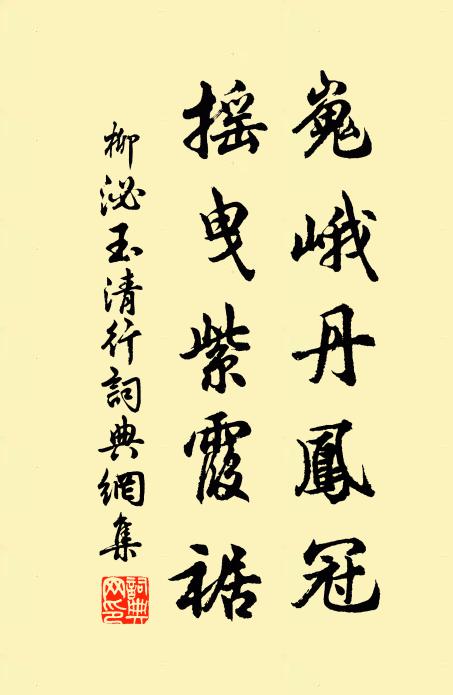 嵬峨丹鳳冠
摇曳紫霞裾
柳泌玉清行詞典網集
詞典网印